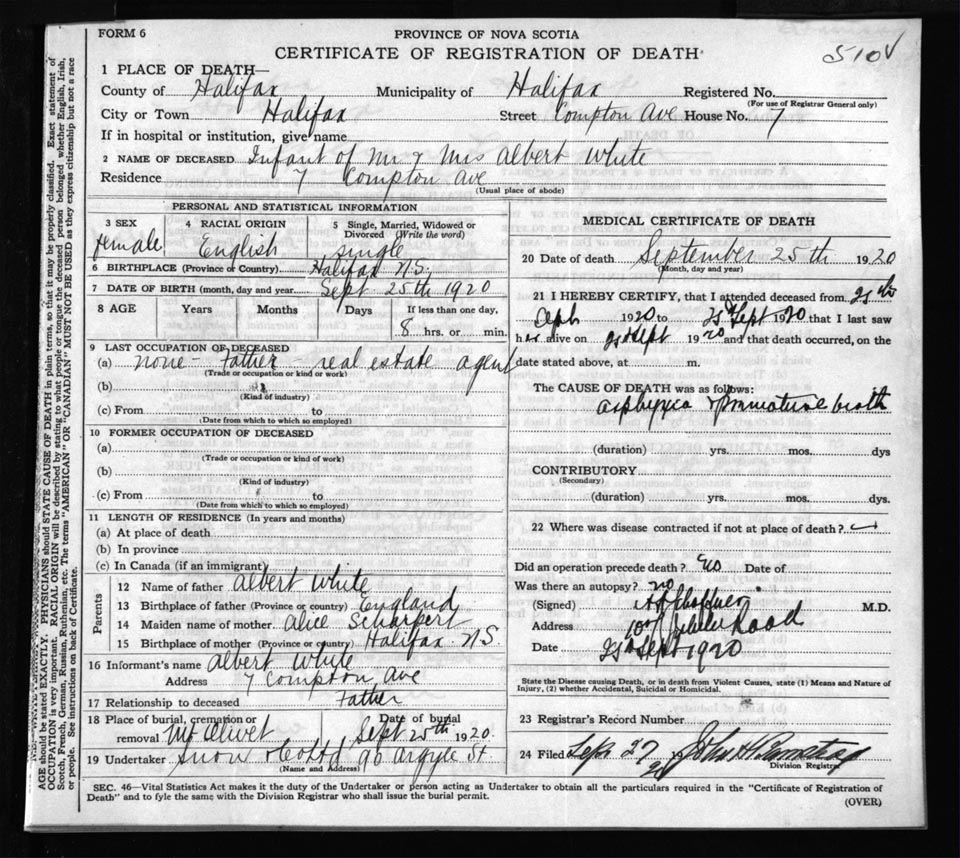 FORM 6
PROVINCE OF NOVA SCOTIA
CERTIFICATE OF REGISTRATION OF DEATH
510
1 PLACE OF DEATH—
County of Halifax Municipality of Halifax Registered No.
(For use of Registrar General only)
City or Town Halifax Street Compton Ave House No. 7
If in hospital or institution, give name
2 NAME OF DECEASED Infant of Mr & Mrs Albert White
Residence 7 Compton Ave
(Usual place of abode)
PERSONAL AND STATISTICAL INFORMATION
3 SEX 4 RACIAL ORIGIN 5 Single, Married, Widowed or Divorced (Write the word)
female English single
6 BIRTHPLACE (Province or Country) Halifax N.S.
7 DATE OF BIRTH (month, day and year) Sept 25th 1920
8 AGE Years Months Days If less than one day,
8 hrs. or min.
9 LAST OCCUPATION OF DECEASED
(a) none - Father - real estate agent
(Trade or occupation or kind or work)
(b)
(Kind of industry)
(c) From to
(Date from which to which so employed)
10 FORMER OCCUPATION OF DECEASED
(a)
(Trade or occupation or kind of work)
(b)
(Kind of industry)
(c) From to
(Date from which to which so employed)
11 LENGTH OF RESIDENCE (In years and months)
(a) At place of death
(b) In province
(c) In Canada (if an immigrant)
Parents
12 Name of father Albert White
13 Birthplace of father (Province or country) England
14 Maiden name of mother Alice
15 Birthplace of mother (Province or country) Halifax N.S.
16 Informant's name Albert White
Address 7 Compton Ave
17 Relationship to deceased Father
18 Place of burial, cremation or removal Mt Olivet Date of burial Sept 25th 1920.
19 Undertaker Snow & Co Ltd 90 Argyle St
(Name and Address)
MEDICAL CERTIFICATE OF DEATH
20 Date of death September 25th 1920
(Month, day and year)
21 I HEREBY CERTIFY, that I attended deceased from 25th
Sept 1920 to 25 Sept 1920 that I last saw
her alive on 25 Sept 1920 and that death occurred, on the
date stated above, at m.
The CAUSE OF DEATH was as follows:
asphyxia & premature birth
(duration) yrs. mos. dys
CONTRIBUTORY
(Secondary)
(duration) yrs. mos. dys.
22 Where was disease contracted if not at place of death?
Did an operation precede death? no Date of
Was there an autopsy? no
(Signed) M.D.
Address Road
Date 25th Sept 1920
State the Disease causing Death, or in death from Violent Causes, state (1) Means and Nature of Injury, (2) whether Accidental, Suicidal or Homicidal.
23 Registrar's Record Number
24 Filed Sept 27 19 20 John H.
Division Registrar
SEC. 46—Vital Statistics Act makes it the duty of the Undertaker or person acting as Undertaker to obtain all the particulars required in the "Certificate of Registration of
Death" and to fyle the same with the Division Registrar who shall issue the burial permit.
(OVER)
AGE should be stated EXACTLY. PHYSICIANS should STATE CAUSE OF DEATH in plain terms, so that it may be properly classified. Exact statement of
OCCUPATION is very important. RACIAL ORIGIN will be described by stating to what people or tongue the deceased person belonged whether English, Irish,
Scotch, French, German, Russian, Ruthenian, etc. The terms "AMERICAN" OR "CANADIAN" MUST NOT BE USED as they express citizenship but not a race
or people. See instructions on back of Certificate.